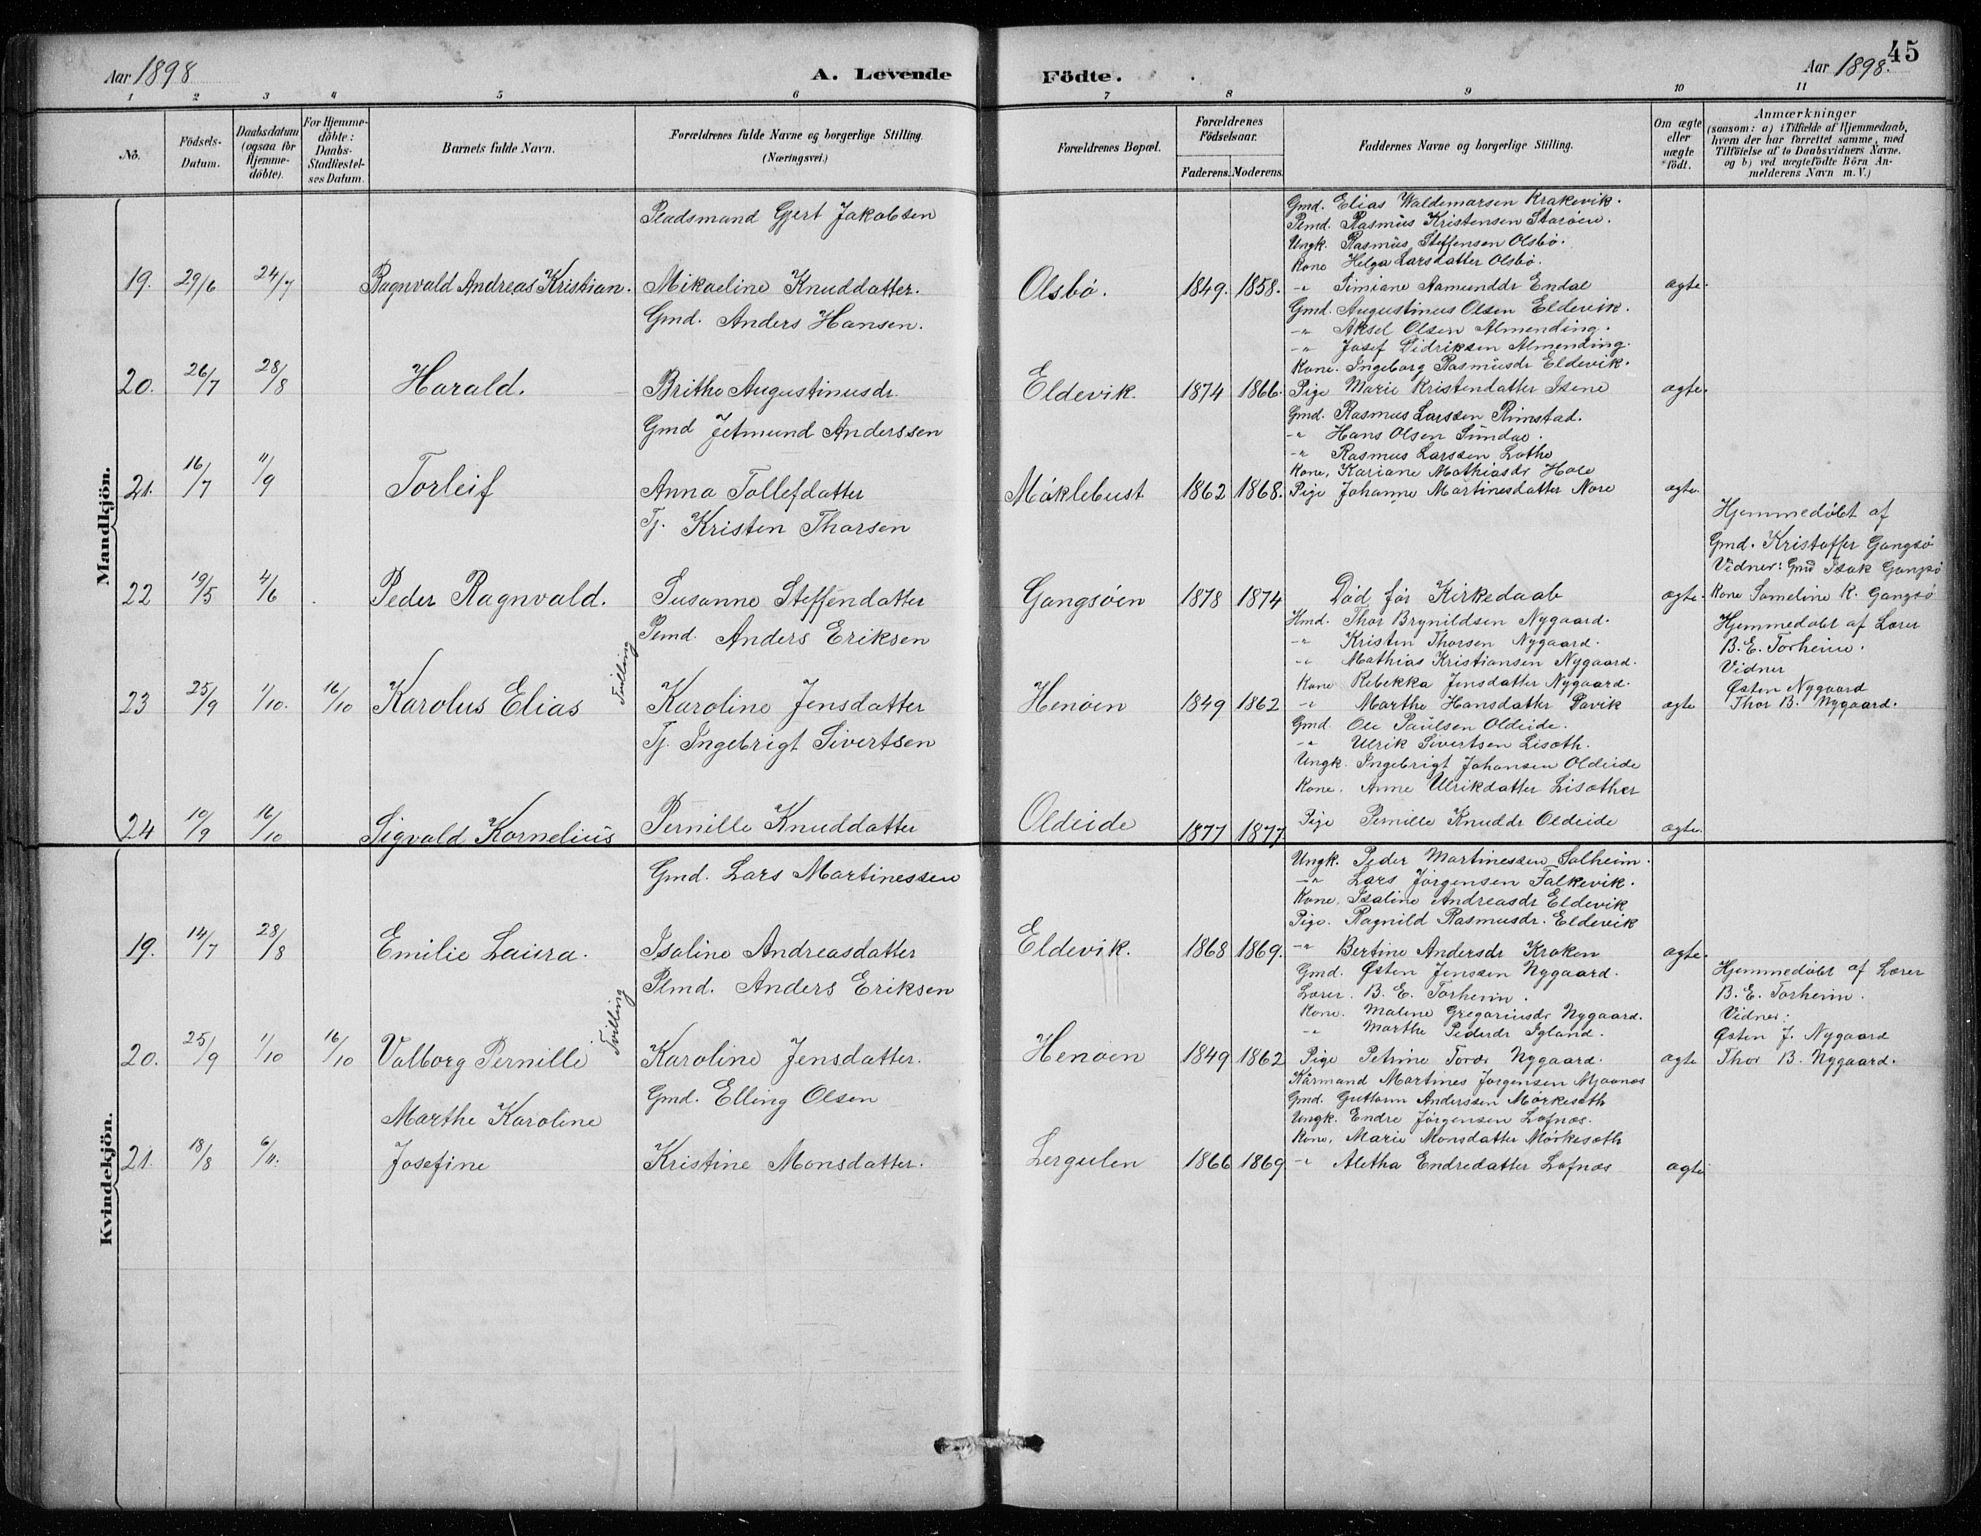 45
Aar 1898
A. Levende
Födte.
Aar 1898.
1 2 3 4 5 6 7 8 9 10 11
No.
Födsels-Datum.
Daabsdatum (ogsaa for Hjemme-döbte).
For Hjemme-döbte: Daabs-Stadfæstel-ses Datum.
Barnets fulde Navn.
Forældrenes fulde Navne og borgerlige Stilling. (Næringsvei.)
Forældrenes Bopæl.
Forældrenes Födselsaar.
Faderens. Moderens.
Faddernes Navne og borgerlige Stilling.
Om ægte eller uægte födt.
Anmærkninger
(saasom: a) i Tilfælde af Hjemmedaab, hvem der har forrettet samme, med Tilföielse af to Daabsvidners Navne. og b) ved uægtefödte Börn An-melderens Navn m. V.)
Mandkjön.
Pladsmand Gjert Jakobsen
Gmd. Elias Waldemarsen Krakevik.
Plmd. Rasmus Kristensen Starøen.
Ungk. Rasmus Steffensen Olsbø.
Kone Helga Larsdatter Olsbø.
19. 29/6 24/7 Ragnvald Andreas Kristian. Mikaeline Knuddatter. Olsbø. 1849. 1858. -"- Simiane Aamunddr Endal ægte.
Gmd. Anders Hansen.
Gmd. Augustinus Olsen Eldevik.
-"- Aksel Olsen Almending.
-"- Josef Didriksen Almending.
Kone. Ingeborg Rasmusdr Eldevik.
20. 26/7 28/8 Harald. Brithe Augustinusdr. Eldevik. 1874 1866. Pige Marie Kristendatter Isene ægte.
Gmd Jetmund Anderssen
Gmd. Rasmus Larssen Rimstad.
-"- Hans Olsen Sundal.
-"- Rasmus Larssen Lothe
Kone, Kariane Mathiasdr Hole
21. 16/7 11/9 Torleif Anna Tollefdatter Møklebust 1862 1868. Pige Johanne Martinesdatter Nore ægte.
Tj. Kristen Thorsen
Hjemmedøbt af
Gmd. Kristoffer Gangsø
Vidner: Gmd Isak Gangsø
22 19/5 4/6 Peder Ragnvald. Susanne Steffendatter Gangsøen 1878 1874 Død før Kirkedaab ægte. Kone Someline K. Gangsø
Plmd. Anders Eriksen
Hmd. Thor Brynildsen Nygaard.
-"- Kristen Thorsen Nygaard.
-"- Mathias Kristiansen Nygaard.
Kone Rebekka Jensdatter Nygaard.
Hjemmedøbt af Lærer
B. E. Torheim.
Vidner
Østen Nygaard
23 25/9 1/10. 16/10 Karolus Elias Tvilling Karoline Jensdatter Henøen 1849 1862 -"- Marthe Hansdatter Pavik ægte Thor B. Nygaard.
Tj. Ingebrigt Sivertsen
Gmd. Ole Paulsen Oldeide.
-"- Ulrik Sivertsen Lisæth.
Ungk. Ingebrigt Johansen Oldeide
Kone. Anne Ulrikdatter Lisæther
24 10/9 16/10 Sigvald Kornelius Pernille Knuddatter Oldeide 1877 1877 Pige Pernille Knuddr Oldeide ægte.
Kvindekjön.
Gmd. Lars Martinessen
Ungk. Peder Martinessen Solheim.
-"- Lars Jørgensen Falkevik.
Kone. Isaline Andreasdr Eldevik
Pige. Ragnild Rasmusdr. Eldevik
19. 14/7 28/8 Emilie Laura. Isaline Andreasdatter Eldevik. 1868 1869. -"- Bertine Andersdr Kraken ægte.
Plmd. Anders Eriksen
Gmd. Østen Jenssen Nygaard.
Lærer. B. E. Torheim.
Kone. Malene Gregoriusdr Nygaard.
-"- Marthe Pedersdr Igland.
Hjemmedøbt af Lærer
B. E. Torheim.
Vidner:
Østen J. Nygaard
20. 25/9 1/10 16/10 Valborg Pernille Tvilling Karoline Jensdatter. Henøen 1849 1862 Pige Petrine Torsdr Nygaard. ægte Thor B. Nygaard.
Gmd. Elling Olsen
Kårmand Martines Jørgensen Mjaanes
Gmd. Guttorm Anderssen Mørkesæth
Ungk. Endre Jørgensen Lofnæs.
Kone, Marie Monsdatter Mørkesæth
Marthe Karoline
21. 18/8 6/11. Josefine Kristine Monsdatter. Lergulen 1866 1869 -"- Aletha Endredatter Lofnæs ægte